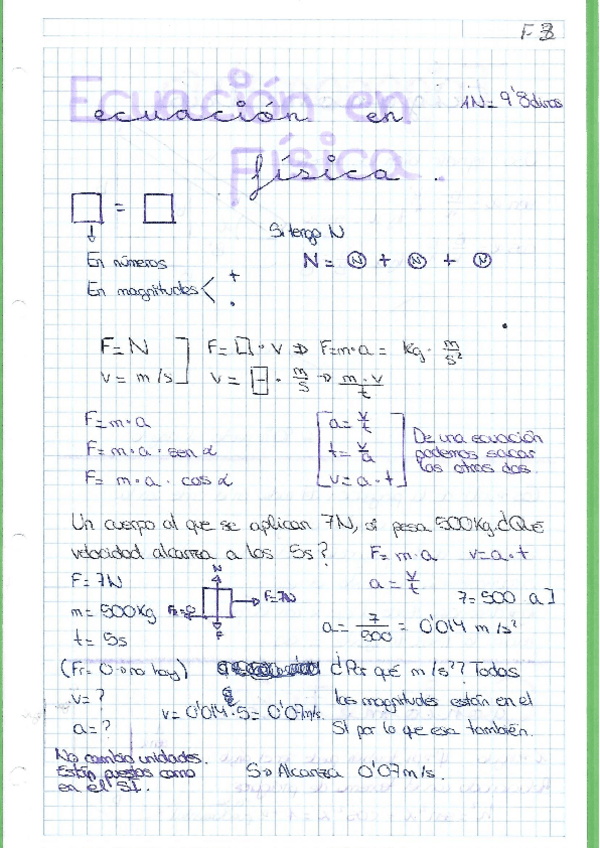 F 3
Ecuación en Física.
ecuación en
física.
1N = 9'8 dinas
□ = □
Si tengo N
En números
N = Ⓝ + Ⓝ + Ⓝ
En magnitudes < + ·
F = N
F = □ · v ⇒ F = m · a = kg · m/s²
v = m/s
v = □ · m/s → m · v / t
F = m · a
F = m · a · sen α
F = m · a · cos α
a = v/t
t = v/a
v = a · t
De una ecuación
podemos sacar
las otras dos.
Un cuerpo al que se aplican 7N, si pesa 500Kg. ¿Qué
velocidad alcanza a los 5s? F = m · a v = a · t
F = 7N
m = 500Kg
t = 5s
N
F = 7N
P
a = v/t
7 = 500 a]
a = 7/500 = 0'014 m/s²
(Fr = 0 → no hay)
¿Por qué m/s²? Todas
las magnitudes están en el
SI por lo que esa también.
v = ?
v = 0'014 · 5 = 0'07 m/s.
a = ?
No cambio unidades.
Están puestas como
en el SI.
S → Alcanza 0'07 m/s.